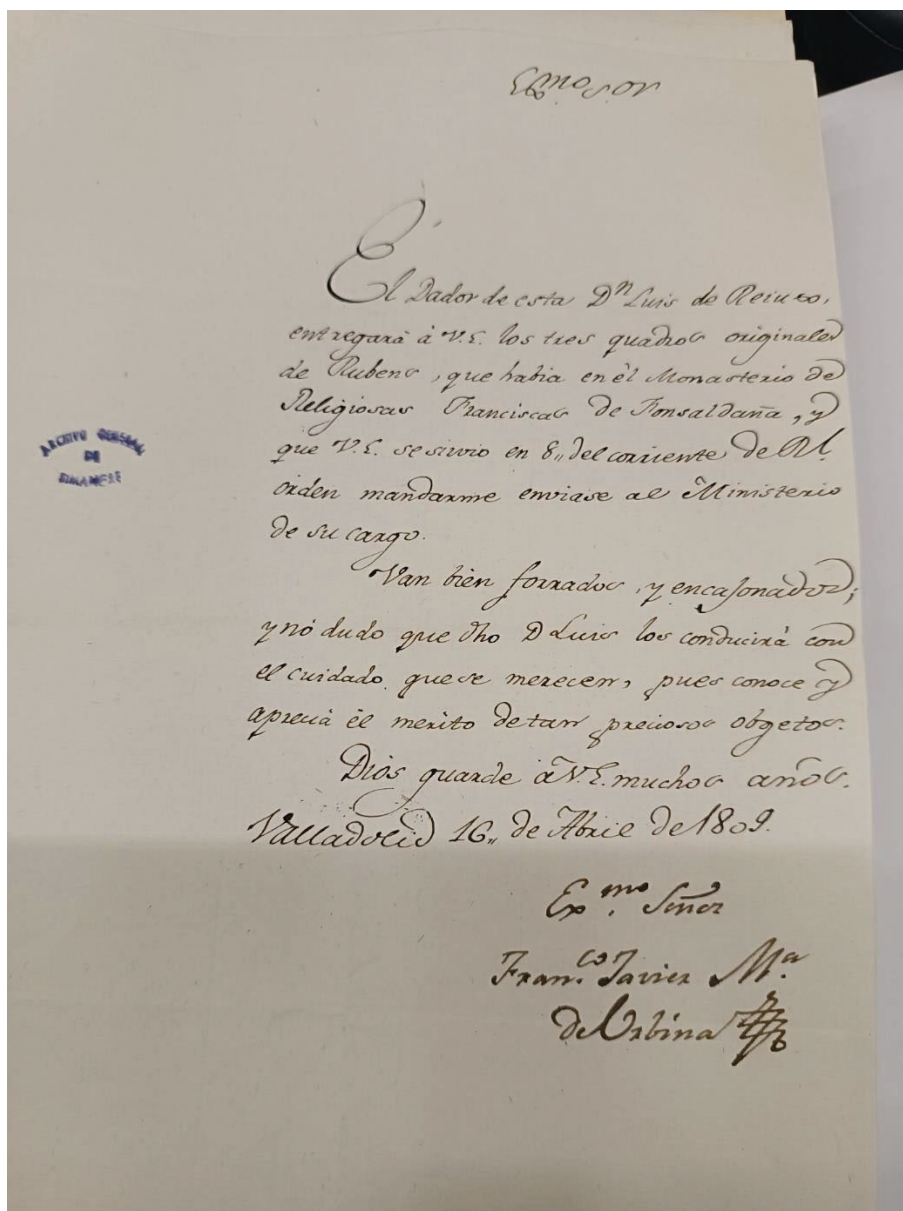 Exmo Sor
El Dador de esta Dn Luis de
entregará à V.E. los tres quadros originales
de Rubens, que habia en èl Monasterio de
Religiosas Franciscas de Fonsaldaña, y
que V.E. se sirvio en 8,, del corriente de Rl.
orden mandarme enviase al Ministerio
de su cargo.
Van bien forrados, y encajonados;
y nó dudo que dho D Luis los conducirá con
el cuidado que se merecen, pues conoce y
aprecia èl merito de tan preciosos obgetos.
Dios guarde à V.E. muchos años.
Valladolid 16,, de Abril de 1809.
Exmo. Señor
Franco. Javier Ma.
de Urbina
ARCHIVO GENERAL
DE
SIMANCAS